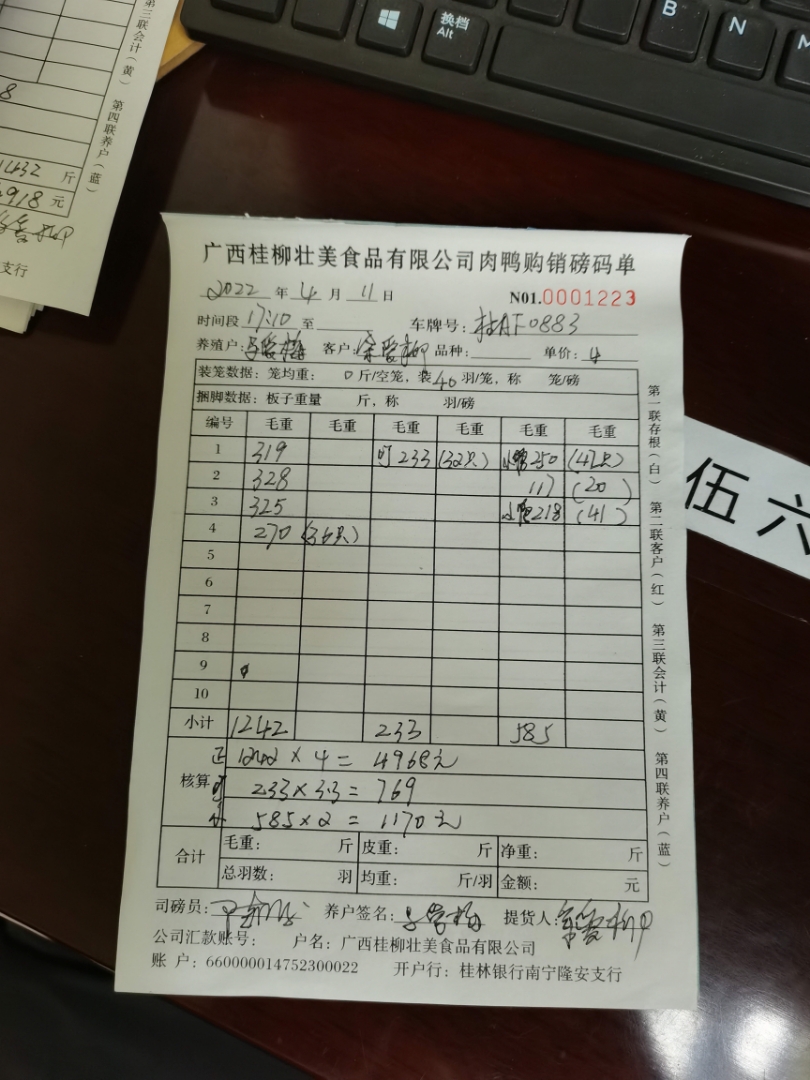 换档
Alt
B
N
M
第三联会计（黄）
第四联养户（蓝）
8
1432 斤
918 元
支行
伍六
广西桂柳壮美食品有限公司肉鸭购销磅码单
2022 年 4 月 11 日 N01.0001223
时间段 17:10 至 车牌号: 桂AF0883
养殖户: 客户: 品种: 单价: 4
装笼数据: 笼均重: 0 斤/空笼, 装 40 羽/笼, 称 笼/磅
捆脚数据: 板子重量 斤, 称 羽/磅
编号 毛重 毛重 毛重 毛重 毛重 毛重
1 319 233 (32只) 250 (47只)
2 328 117 (20)
3 325 218 (41)
4 270 (36只)
5
6
7
8
9
10
小计 1242 233 585
核算
正 1242 × 4 = 4968元
233 × 3.3 = 769
585 × 2 = 1170元
合计
毛重: 斤 皮重: 斤 净重: 斤
总羽数: 羽 均重: 斤/羽 金额: 元
司磅员: 养户签名: 提货人:
公司汇款账号: 户名: 广西桂柳壮美食品有限公司
账 户: 660000014752300022 开户行: 桂林银行南宁隆安支行
第一联存根（白） 第二联客户（红） 第三联会计（黄） 第四联养户（蓝）